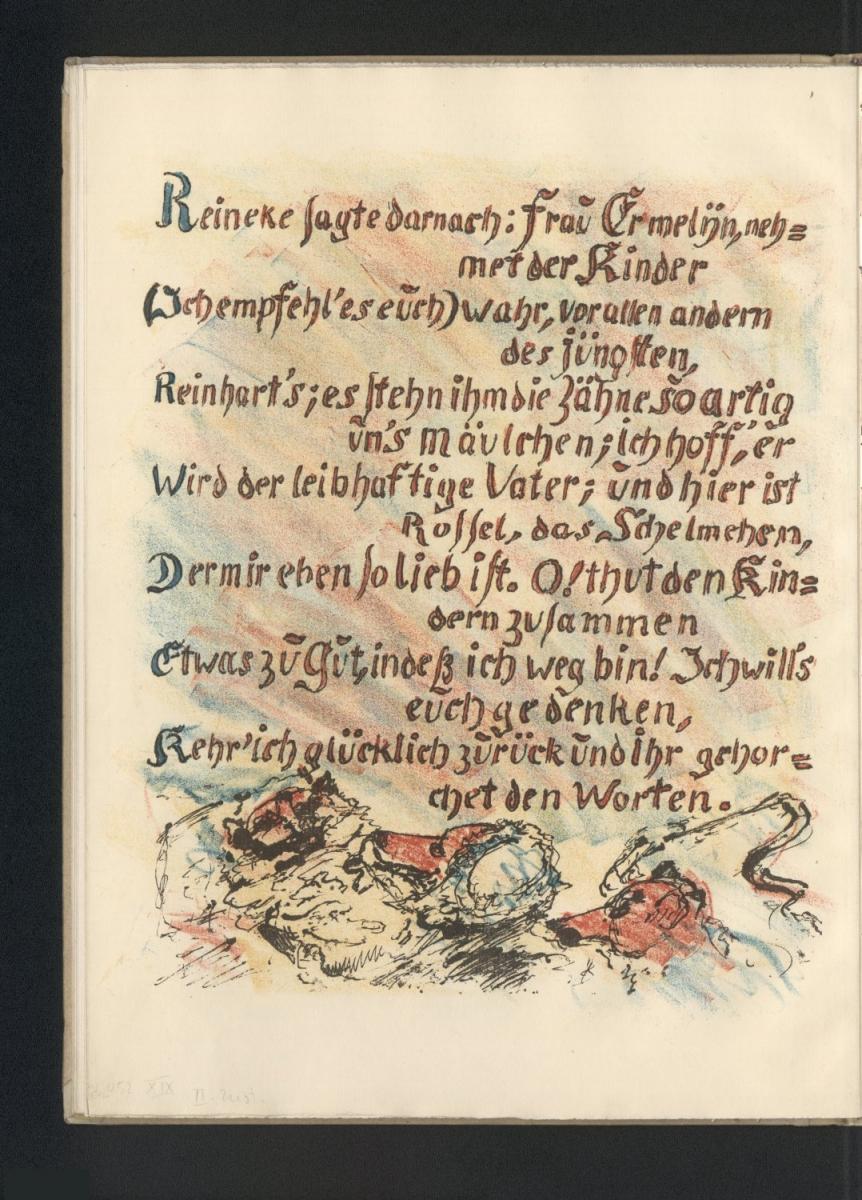 Reineke sagte darnach: Frau Ermelyn, neh=
met der Kinder
(Ich empfehl'es euch) wahr, vor allen andern
des jüngsten,
Reinhart's; es stehn ihm die Zähne so artig
un's Mäulchen; ich hoff', er
Wird der leibhaftige Vater; und hier ist
Rossel, das Schelmchen,
Der mir eben so lieb ist. O! thut den Kin=
dern zusammen
Etwas zu Gut, indeß ich weg bin! Ich will's
euch gedenken,
Kehr' ich glücklich zurück und ihr gehor=
chet den Worten.
XIX